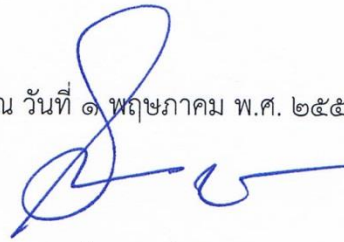 ณ วันที่ ๑ พฤษภาคม พ.ศ. ๒๕๕